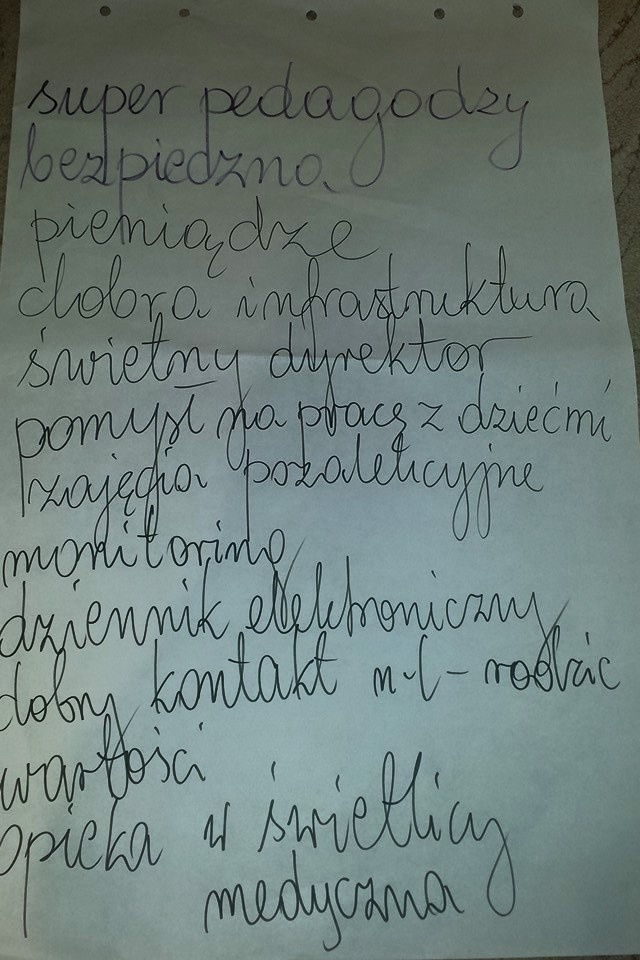 super pedagodzy
bezpiedzno
pieniądze
dobra infrastruktura
świetny dyrektor
pomysł na pracę z dziećmi
zajęcia pozalekcyjne
monitoring
dziennik elektroniczny
dobry kontakt n-l - rodzic
wartości
opieka w świetlicy
medyczna